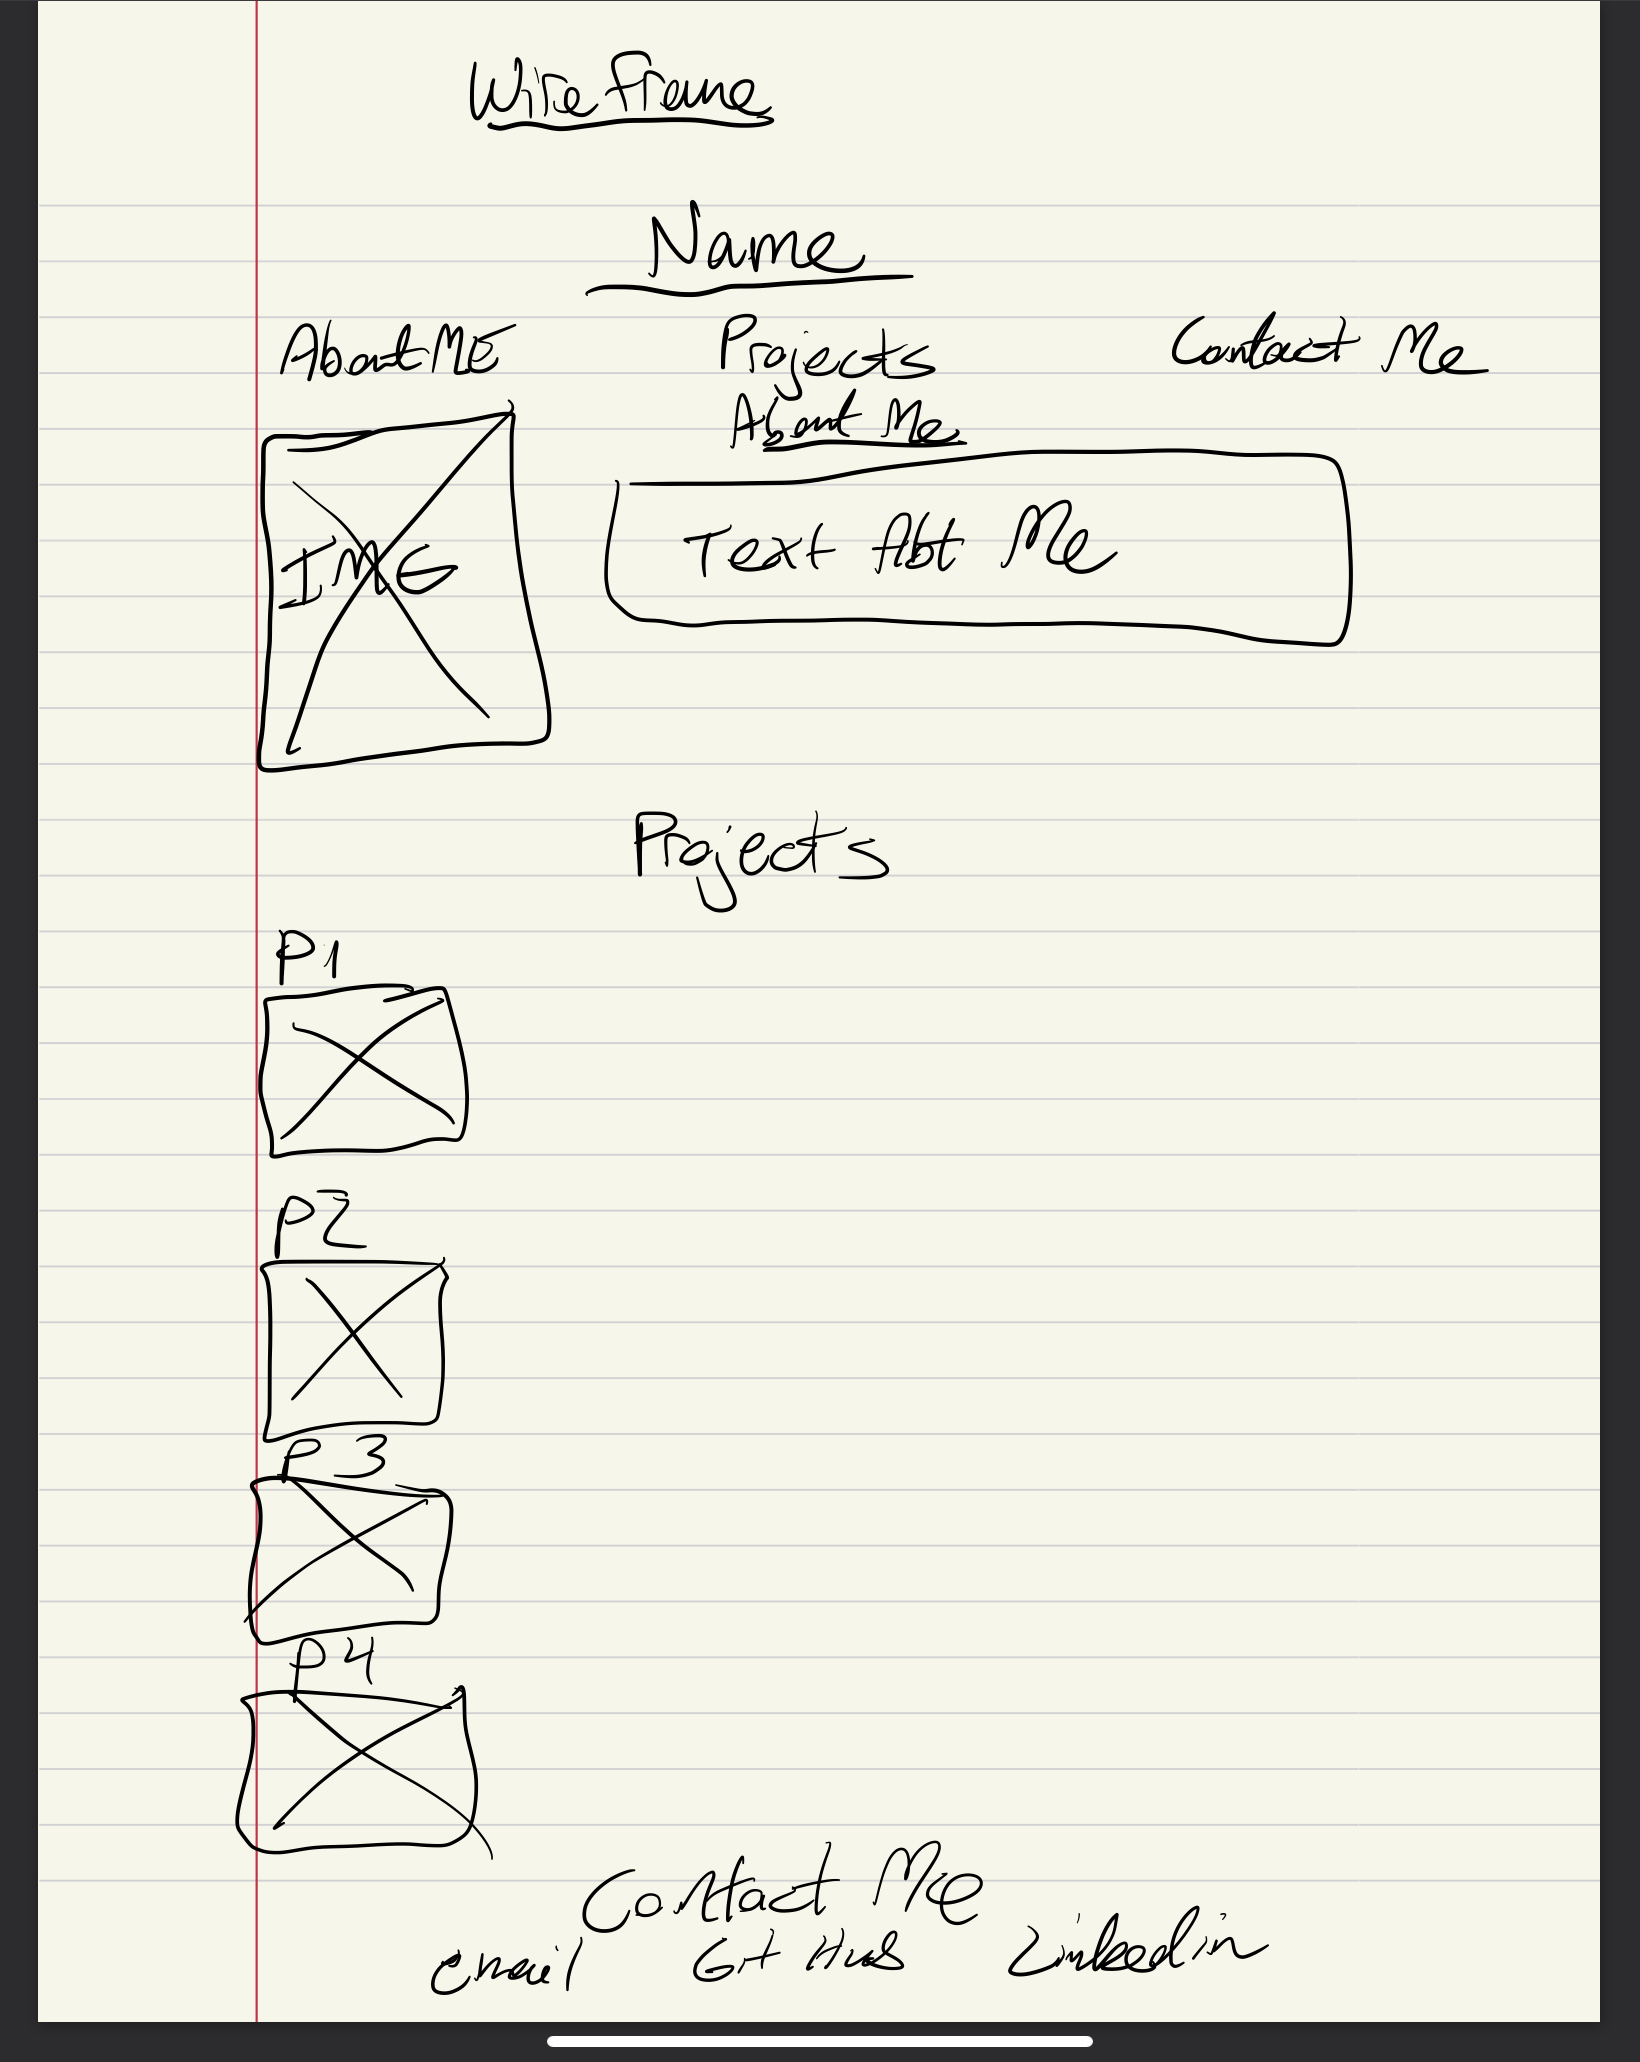 Wire frame
Name
About Me Projects Contact Me
About Me
IMG
Text Abt Me
Projects
P1
P2
P3
P4
Contact Me
email Git Hub Linkedin